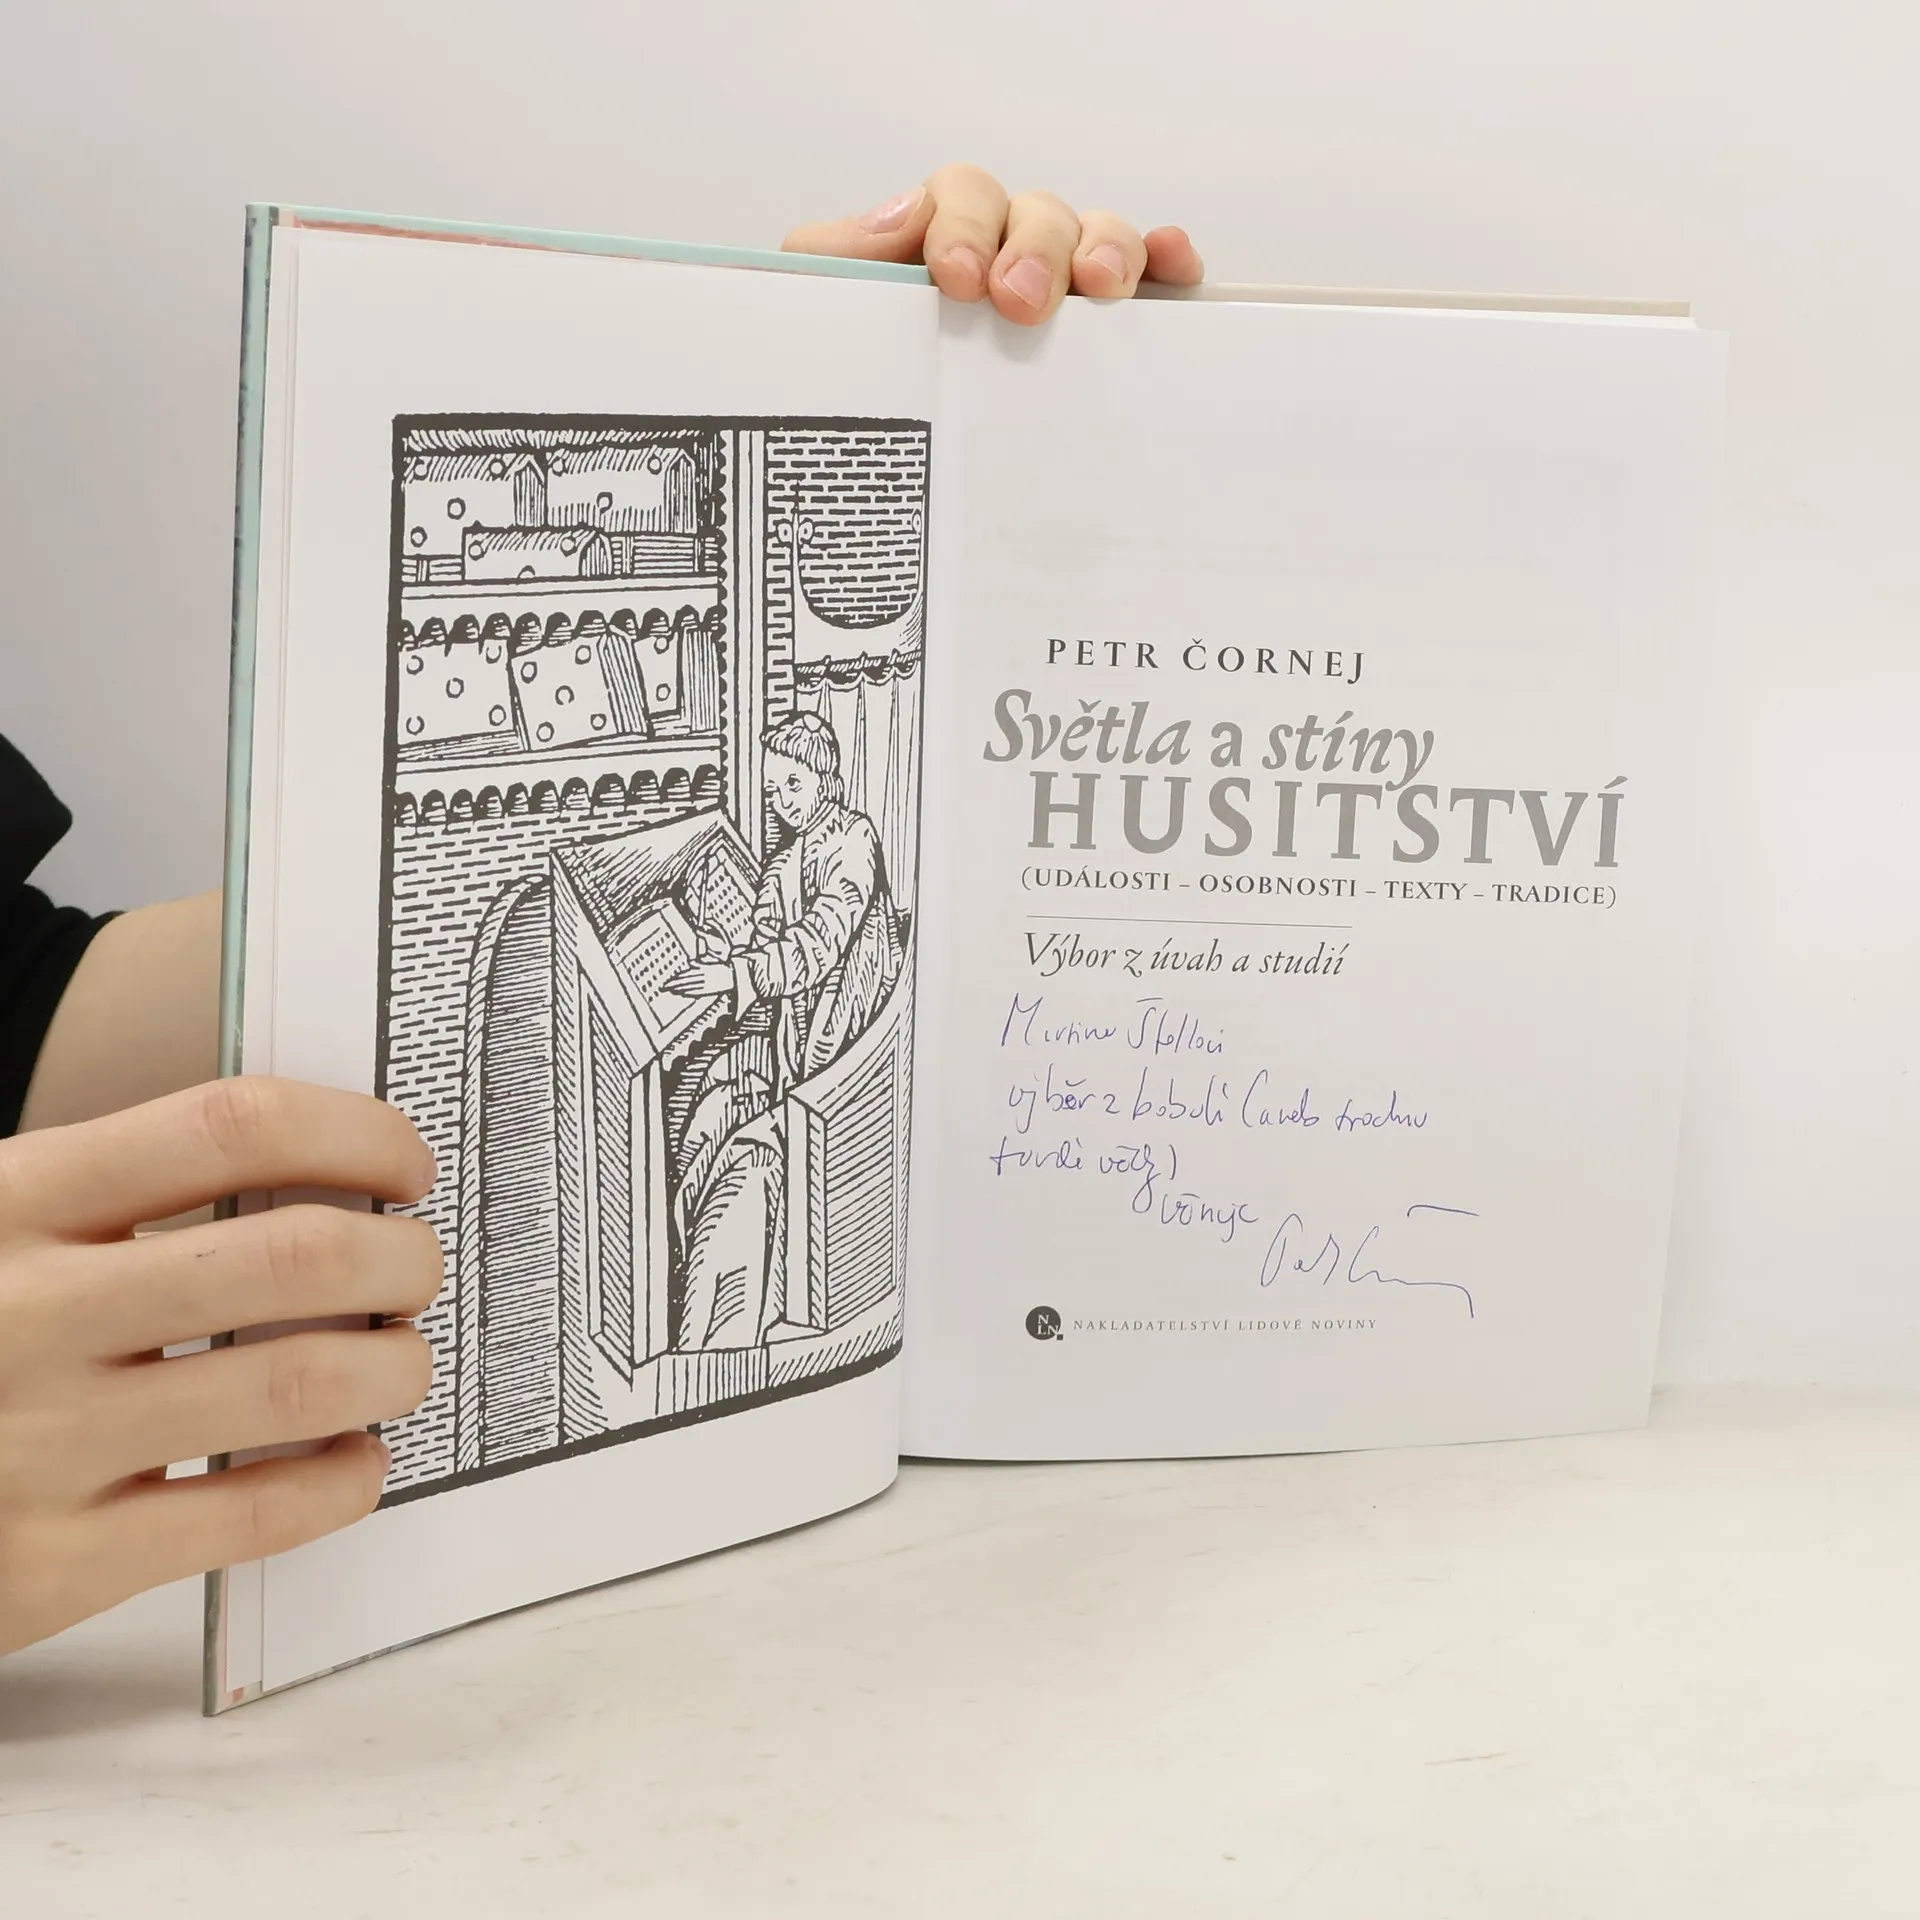 PETR ČORNEJ
Světla a stíny
HUSITSTVÍ
(UDÁLOSTI – OSOBNOSTI – TEXTY – TRADICE)
Výbor z úvah a studií
výběr z bobulí (aneb trochu
tvrdé věty)
věnuje
Petr Čornej
N
LN
NAKLADATELSTVÍ LIDOVÉ NOVINY